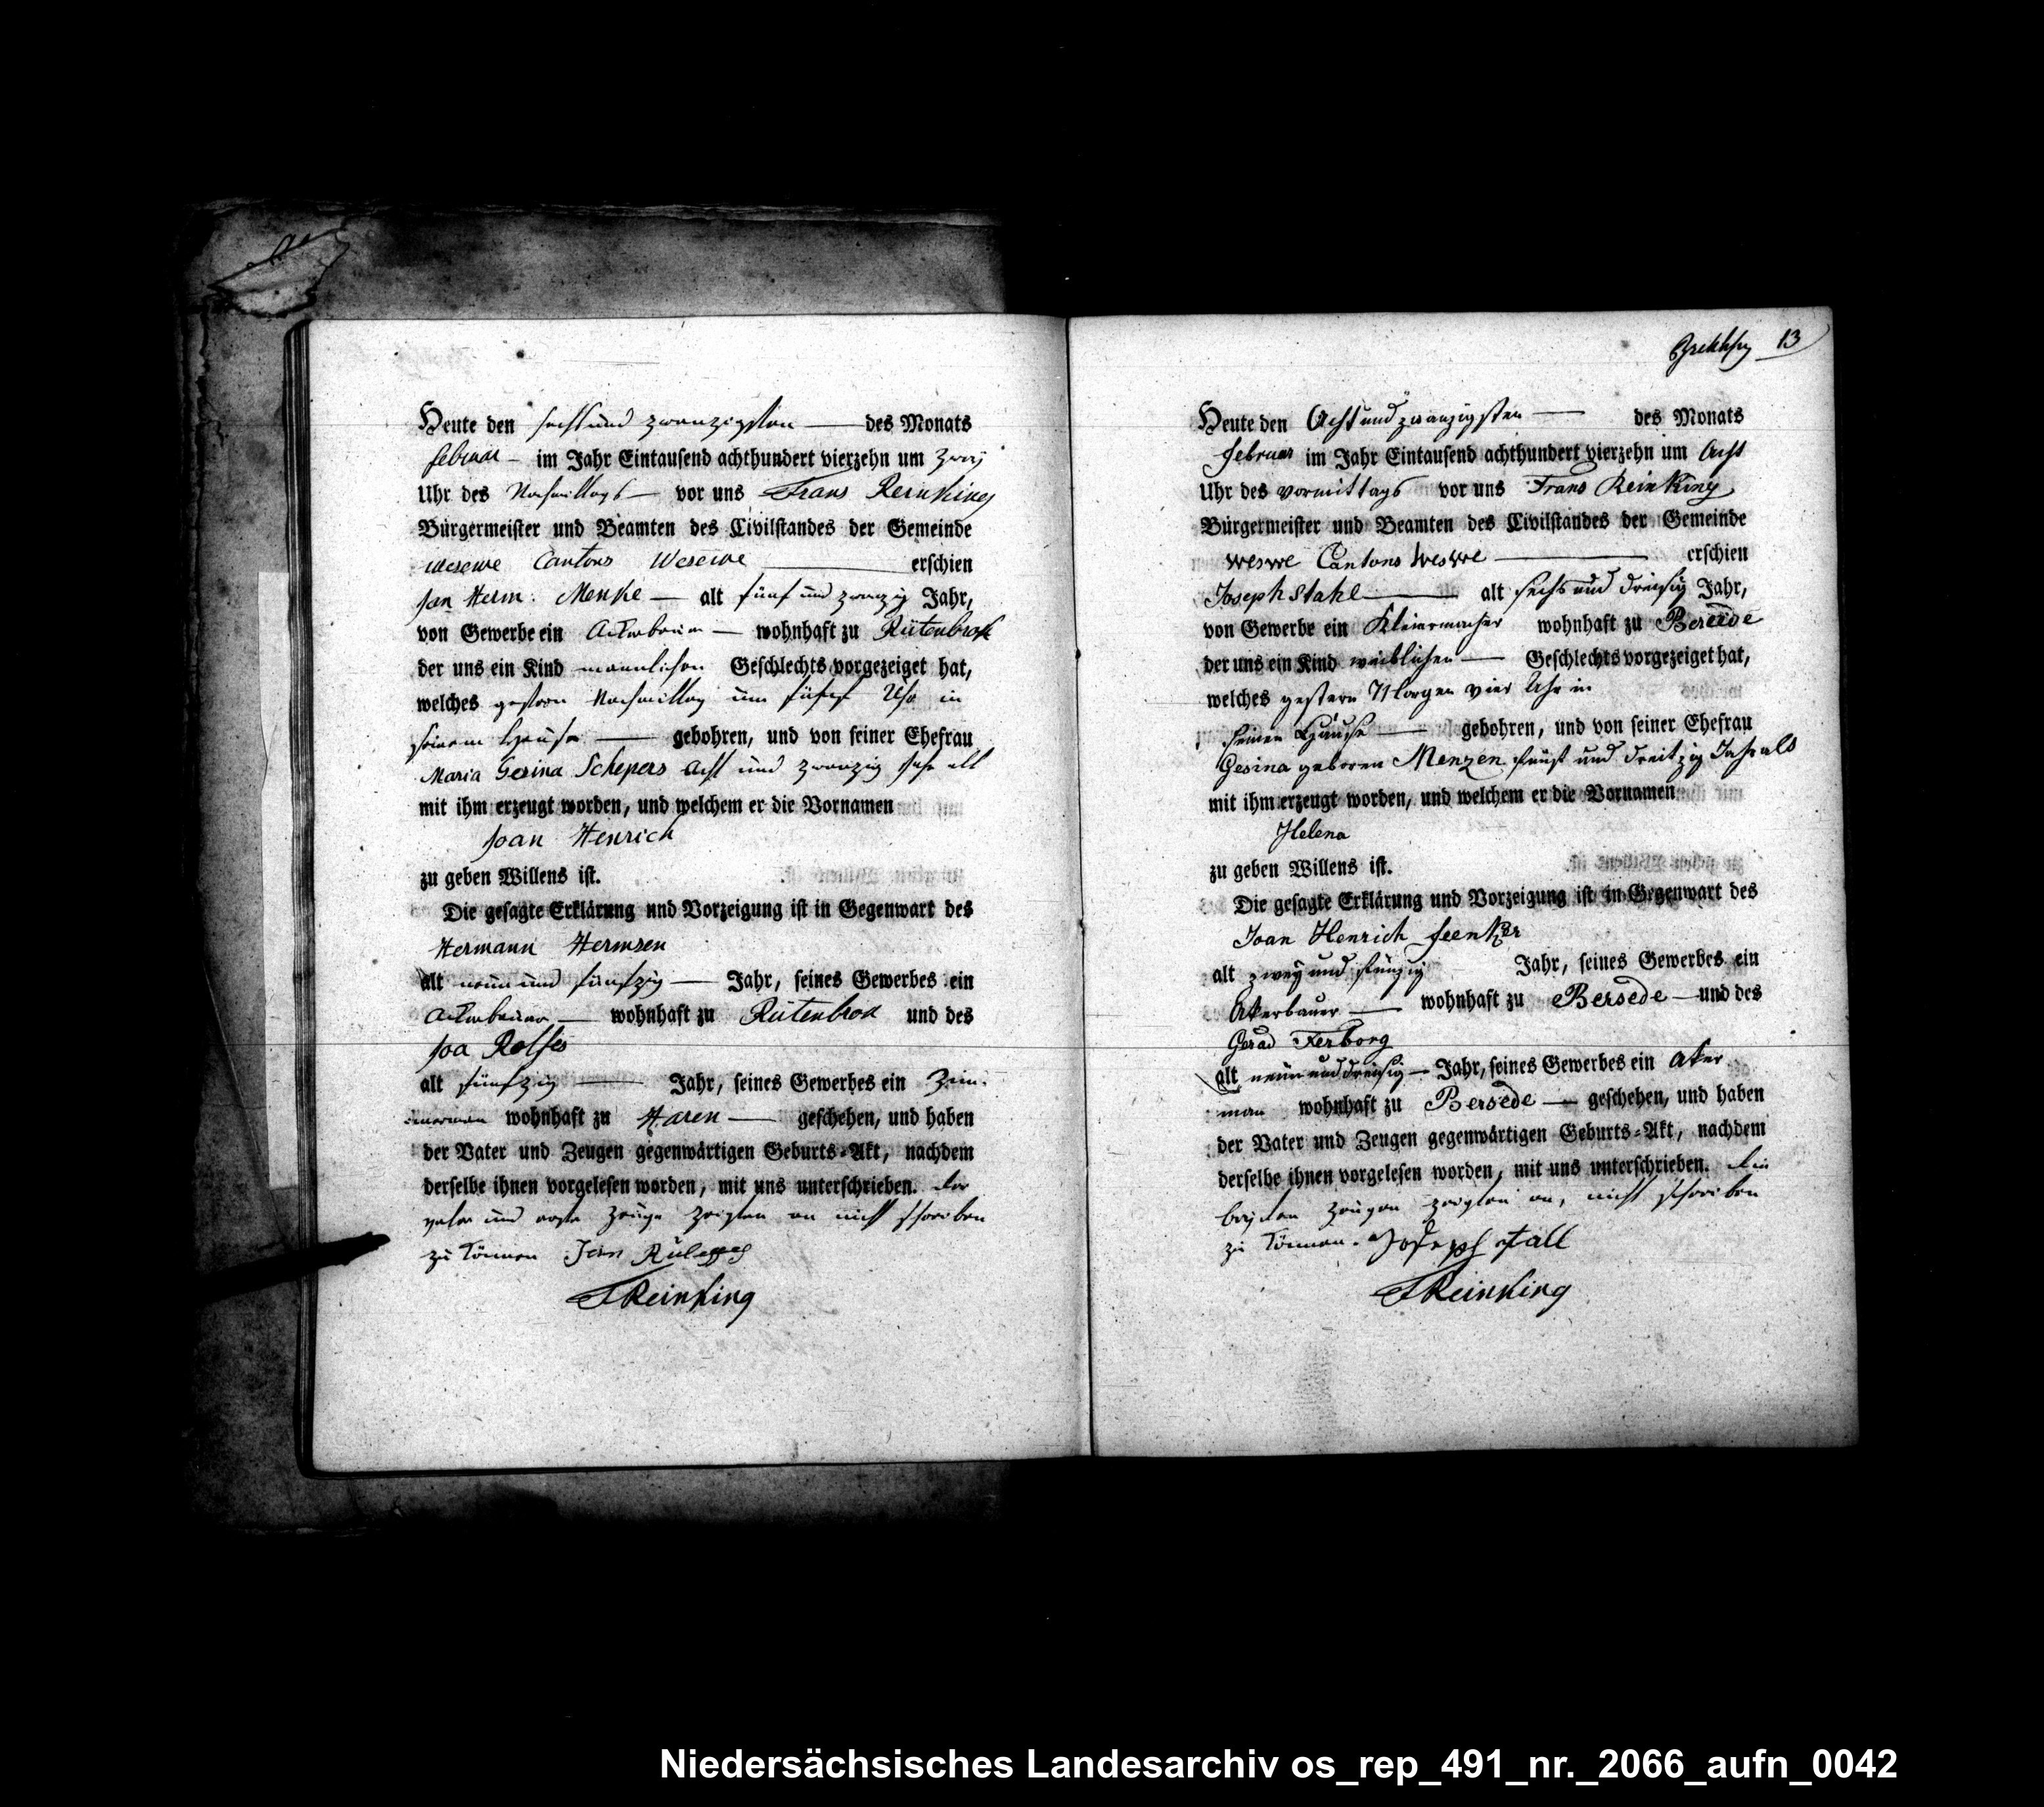 Heute den sechs und zwanzigsten — des Monats
Februar – im Jahr Eintausend achthundert vierzehn um zwey
Uhr des Nachmittags — vor uns Frans Reinking
Bürgermeister und Beamten des Civilstandes der Gemeinde
Wesewe Cantons Wesewe — erschien
Jan Herm: Menke — alt fünf und zwanzig Jahr,
von Gewerbe ein Ackerbauer — wohnhaft zu Rütenbrok
der uns ein Kind mannlichen Geschlechts vorgezeiget hat,
welches gestern Nachmittag um fünf Uhr in
seinem Hause — gebohren, und von seiner Ehefrau
Maria Gesina Schepers acht und zwanzig Jahr alt
mit ihm erzeugt worden, und welchem er die Vornamen
Joan Henrich
zu geben Willens ist.
Die gesagte Erklärung und Vorzeigung ist in Gegenwart des
Hermann Hermsen
alt neun und fünfzig — Jahr, seines Gewerbes ein
Ackerbauer — wohnhaft zu Rütenbrok und des
Joa Rolfes
alt fünfzig — Jahr, seines Gewerbes ein Zim-
merman wohnhaft zu Haren — geschehen, und haben
der Vater und Zeugen gegenwärtigen Geburts-Akt, nachdem
derselbe ihnen vorgelesen worden, mit uns unterschrieben. der
vater und erste Zeuge zeigten an nicht schreiben
zu können Jan
FReinking
13
Heute den Acht und zwanzigsten — des Monats
Februar im Jahr Eintausend achthundert vierzehn um Acht
Uhr des vormittags vor uns Frans Reinking
Bürgermeister und Beamten des Civilstandes der Gemeinde
weswe Cantons weswe — erschien
Joseph Stahl — alt sechs und dreisig Jahr,
von Gewerbe ein Kleiermacher wohnhaft zu Bersede
der uns ein Kind weiblichen — Geschlechts vorgezeiget hat,
welches gestern Morgen vier Uhr in
seinen Hause — gebohren, und von seiner Ehefrau
Gesina geboren Menzen fünf und dreitzig Jahr alt
mit ihm erzeugt worden, und welchem er die Vornamen
Helena
zu geben Willens ist.
Die gesagte Erklärung und Vorzeigung ist in Gegenwart des
Joan Henrich Feenker
alt zwey und Jahr, seines Gewerbes ein
Akerbauer — wohnhaft zu Bersede — und des
Gerad Terborg
alt neun und dreisig — Jahr, seines Gewerbes ein Aker
man wohnhaft zu Bersede — geschehen, und haben
der Vater und Zeugen gegenwärtigen Geburts-Akt, nachdem
derselbe ihnen vorgelesen worden, mit uns unterschrieben. die
beyden Zeugen zeigten an, nicht schreiben
zu können. Joseph Stall
FReinking
Niedersächsisches Landesarchiv os_rep_491_nr._2066_aufn_0042